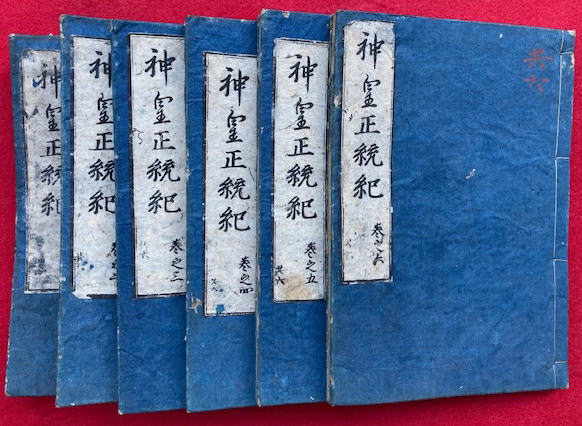 神皇正統紀
神皇正統紀
神皇正統紀
巻之三
神皇正統紀
巻之四
共六
神皇正統紀
巻之五
共六
神皇正統紀
巻之六
共六